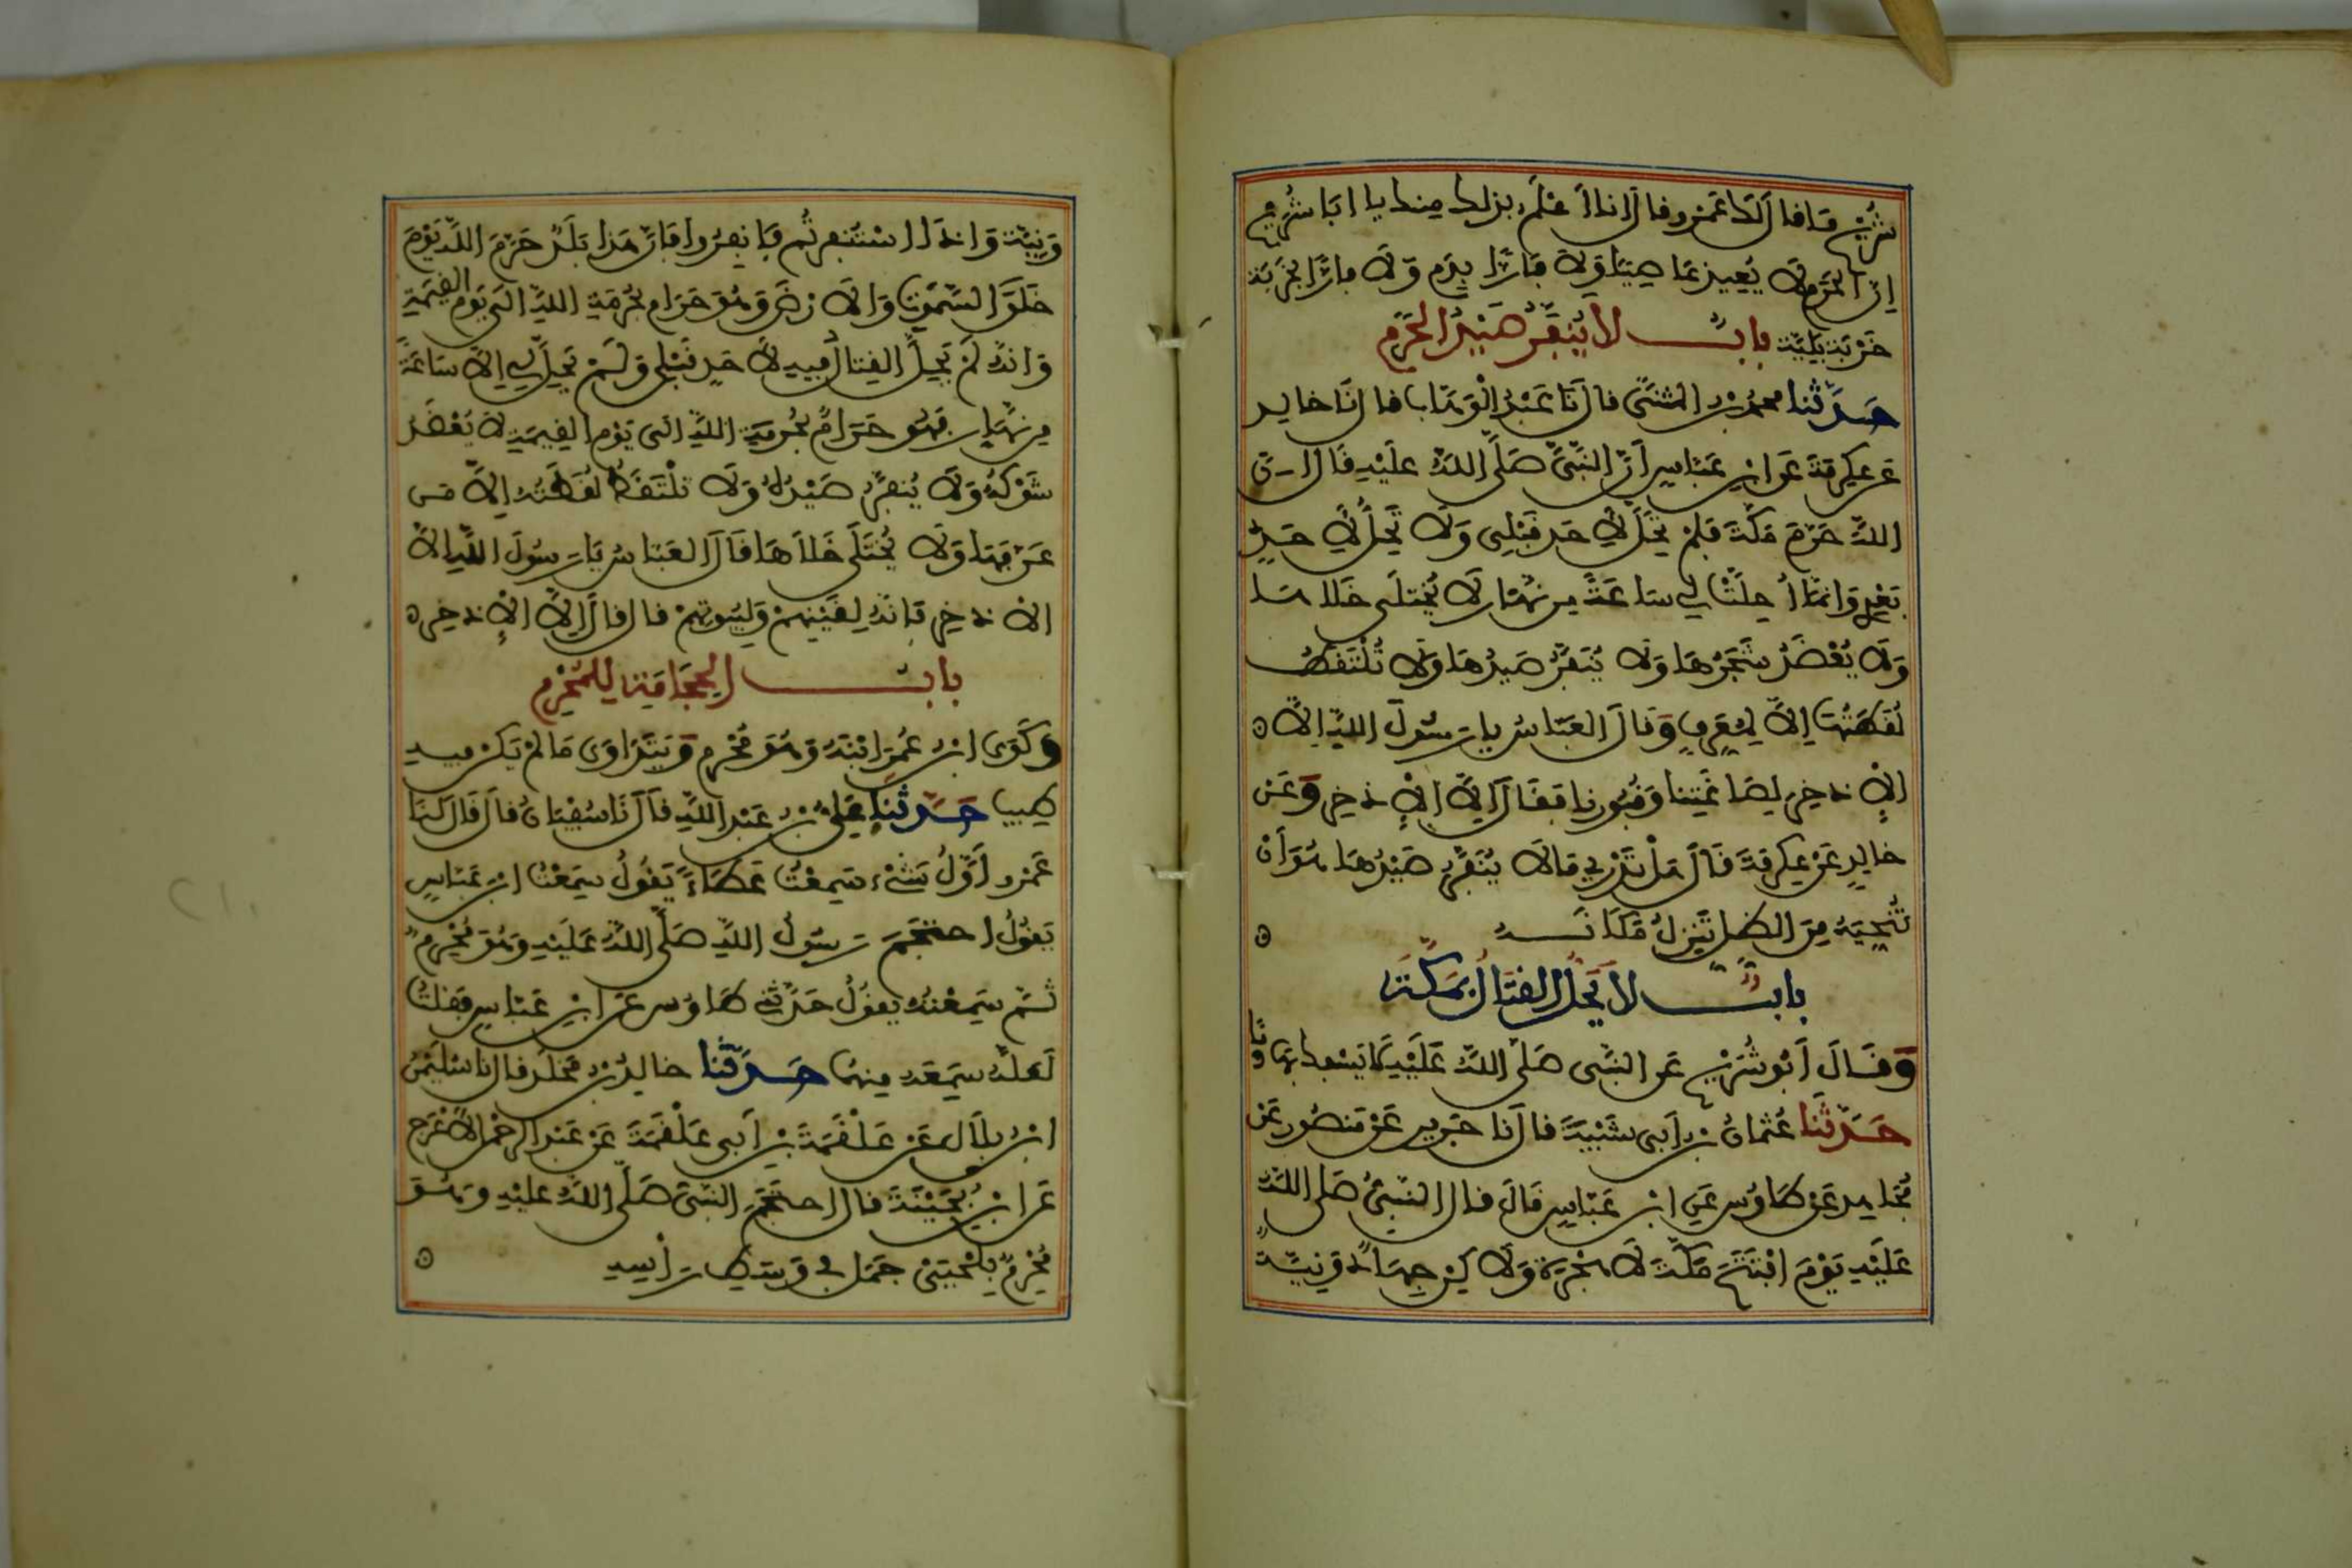 شُرَيْحٍ مَا قَالَ لَكَ عَمْرٌو قَالَ أَنَا أَعْلَمُ بِذَلِكَ مِنْكَ يَا أَبَا شُرَيْحٍ
إِنَّ الْحَرَمَ لَا يُعِيذُ عَاصِيًا وَلَا فَارًّا بِدَمٍ وَلَا فَارًّا بِخَرْبَةٍ
خَرْبَةٌ بَلِيَّةٌ بابٌ لا يُنَفَّرُ صَيْدُ الحَرَمِ
حَدَّثَنا محمد بن المثنَّى قال نَا عَبْدُ الْوَهَّابِ قال نَا خالد
عَنْ عِكْرِمَةَ عَنِ ابْنِ عَبَّاسٍ أَنَّ النَّبِيَّ صَلَّى اللَّهُ عَلَيْهِ قَالَ إِنَّ
اللَّهَ حَرَّمَ مَكَّةَ فَلَمْ تَحِلَّ لِأَحَدٍ قَبْلِي وَلَا تَحِلُّ لِأَحَدٍ
بَعْدِي وَإِنَّمَا أُحِلَّتْ لِي سَاعَةً مِنْ نَهَارٍ لَا يُخْتَلَى خَلَاهَا
وَلَا يُعْضَدُ شَجَرُهَا وَلَا يُنَفَّرُ صَيْدُهَا وَلَا تُلْتَقَطُ
لُقَطَتُهَا إِلَّا لِمُعَرِّفٍ وَقَالَ الْعَبَّاسُ يَا رَسُولَ اللَّهِ إِلَّا
الْإِذْخِرَ لِصَاغَتِنَا وَقُبُورِنَا فَقَالَ إِلَّا الْإِذْخِرَ وَعَنْ
خَالِدٍ عَنْ عِكْرِمَةَ قَالَ هَلْ تَدْرِي مَا لَا يُنَفَّرُ صَيْدُهَا هُوَ أَنْ
تُنَحِّيَهُ مِنَ الظِّلِّ تَنْزِلُ مَكَانَهُ
بابٌ لا يَحِلُّ القِتَالُ بِمَكَّةَ
وَقَالَ أَبُو شُرَيْحٍ عَنِ النَّبِيِّ صَلَّى اللَّهُ عَلَيْهِ لَا يَسْفِكْ بِهَا دَمًا
حَدَّثَنَا عُثْمَانُ بْنُ أَبِي شَيْبَةَ قَالَ نَا جَرِيرٌ عَنْ مَنْصُورٍ عَنْ
مُجَاهِدٍ عَنْ طَاوُسٍ عَنِ ابْنِ عَبَّاسٍ قَالَ قَالَ النَّبِيُّ صَلَّى اللَّهُ
عَلَيْهِ يَوْمَ افْتَتَحَ مَكَّةَ لَا هِجْرَةَ وَلَكِنْ جِهَادٌ وَنِيَّةٌ
وَنِيَّة وَإِذَا اسْتُنْفِرْتُم فَانفِرُوا فَإِنَّ هَذَا بَلَدٌ حَرَّمَ اللَّهُ يَوْمَ
خَلَقَ السَّمَوَاتِ وَالْأَرْضَ وَهُوَ حَرَامٌ بِحُرْمَةِ اللَّهِ إِلَى يَوْمِ الْقِيَمَةِ
وَإِنَّهُ لَمْ يَحِلَّ الْقِتَالُ فِيهِ لِأَحَدٍ قَبْلِي وَلَمْ يَحِلَّ لِي إِلَّا سَاعَةً
مِنْ نَهَارٍ فَهُوَ حَرَامٌ بِحُرْمَةِ اللَّهِ إِلَى يَوْمِ الْقِيَمَةِ لَا يُعْضَدُ
شَوْكُهُ وَلَا يُنَفَّرُ صَيْدُهُ وَلَا تُلْتَقَطُ لُقَطَتُهُ إِلَّا مَن
عَرَّفَهَا وَلَا يُخْتَلَى خَلَاهَا قَالَ الْعَبَّاسُ يَا رَسُولَ اللَّهِ إِلَّا
الْإِذْخِرَ فَإِنَّهُ لِقَيْنِهِمْ وَلِبُيُوتِهِمْ قَالَ قَالَ إِلَّا الْإِذْخِرَ
بابُ الحِجَامَةِ لِلْمُحْرِمِ
وَكَوَى ابْنُ عُمَرَ ابْنَهُ وَهُوَ مُحْرِمٌ وَيَتَدَاوَى مَا لَمْ يَكُنْ فِيهِ
طِيبٌ حَدَّثَنَا عَلِيُّ بْنُ عَبْدِ اللَّهِ قَالَ نَا سُفْيَانُ قَالَ قَالَ لَنَا
عَمْرٌو أَوَّلُ شَيْءٍ سَمِعْتُ عَطَاءً يَقُولُ سَمِعْتُ ابْنَ عَبَّاسٍ
يَقُولُ احْتَجَمَ رَسُولُ اللَّهِ صَلَّى اللَّهُ عَلَيْهِ وَهُوَ مُحْرِمٌ
ثُمَّ سَمِعْتُهُ يَقُولُ حَدَّثَنِي طَاوُسٌ عَنِ ابْنِ عَبَّاسٍ فَقُلْتُ
لَعَلَّهُ سَمِعَهُ مِنْهُمَا حَدَّثَنَا خَالِدُ بْنُ مَخْلَدٍ قَالَ نَا سُلَيْمَنُ
ابْنُ بِلَالٍ عَنْ عَلْقَمَةَ بْنِ أَبِي عَلْقَمَةَ عَنْ عَبْدِ الرَّحْمَنِ الْأَعْرَجِ
عَنِ ابْنِ بُحَيْنَةَ قَالَ احْتَجَمَ النَّبِيُّ صَلَّى اللَّهُ عَلَيْهِ وَهُوَ
مُحْرِمٌ بِلَحْيَيْ جَمَلٍ فِي وَسَطِ رَأْسِهِ